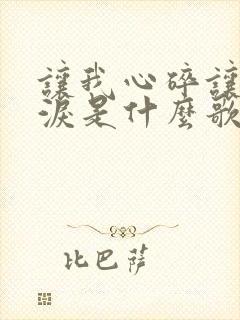 讓我心碎讓
淚是什麼歌
比巴薩